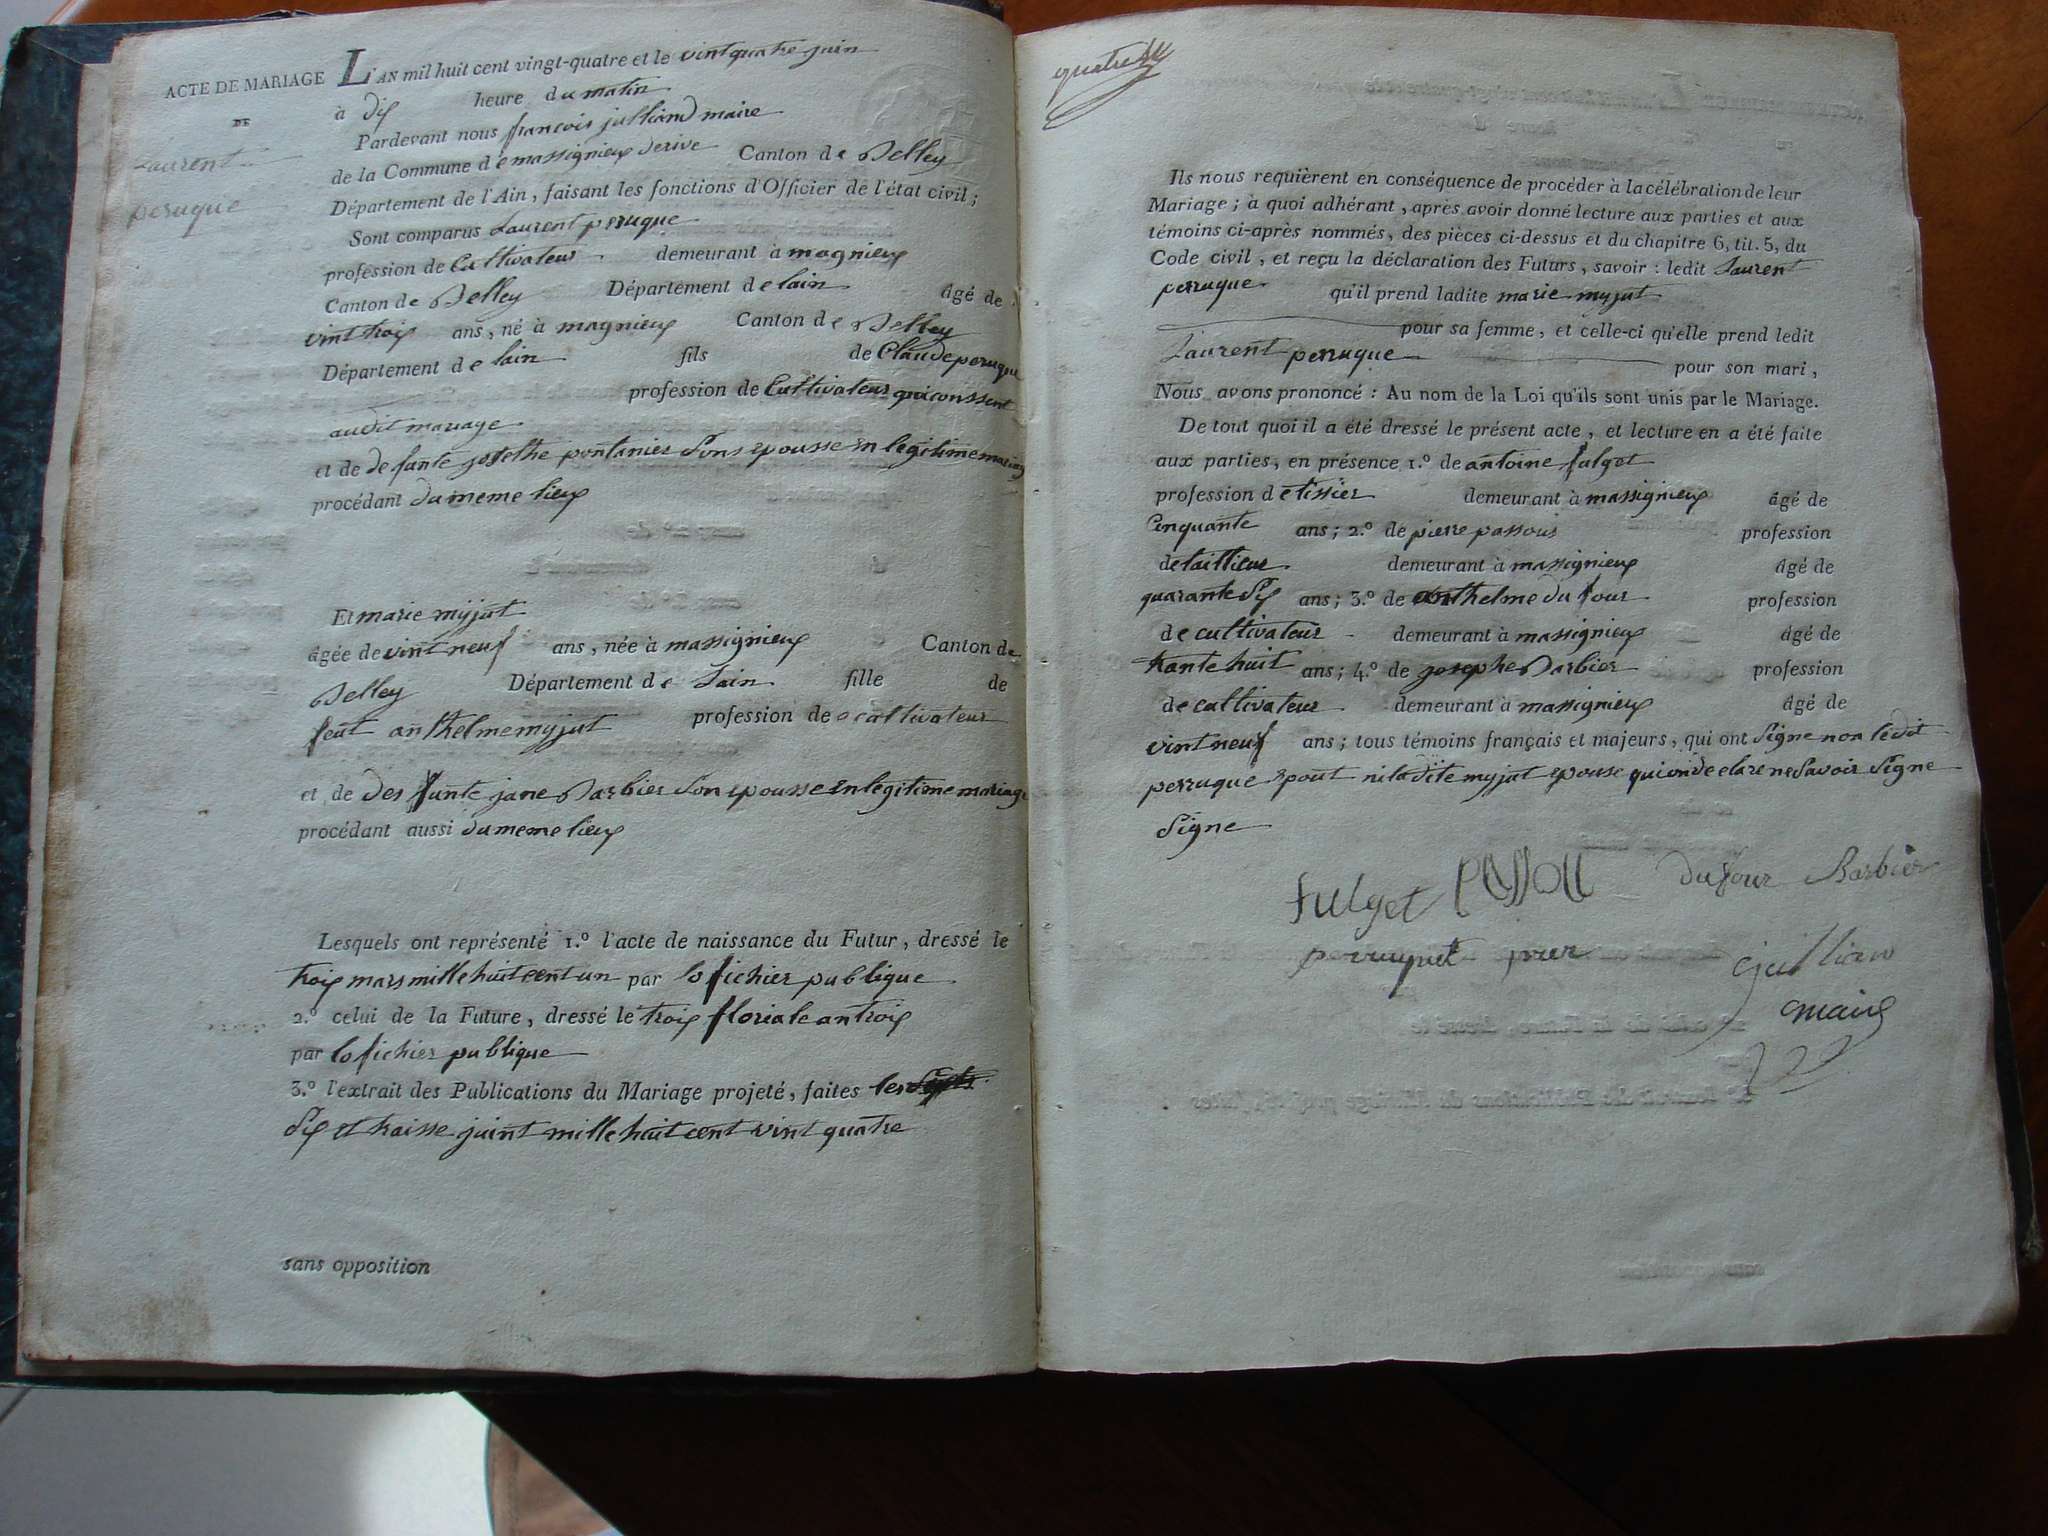 ACTE DE MARIAGE
DE
Laurent
peruque
L'AN mil huit cent vingt-quatre et le vintquatre juin
à dix heure du matin
Pardevant nous francois julliand maire
de la Commune de massignieux derive Canton de Belley
Département de l'Ain, faisant les fonctions d'Officier de l'état civil;
Sont comparus Laurent perruque
profession de Cultivateur demeurant à magnieux
Canton de Belley Département de lain âgé de
vint trois ans, né à magnieux Canton de Belley
Département de lain fils de Claude peruque
profession de Cultivateur qui conssent
audit mariage
et de de funte josethe pontanier sons epousse en legitime mariag
procédant du meme lieux
Et marie myjut
âgée de vint neuf ans, née à massignieux Canton de
Belley Département de Lain fille de
feut anthelme myjut profession de cultivateur
et de des funte jane Barbier son epousse en legitime mariage
procédant aussi du meme lieux
Lesquels ont représenté 1.º l'acte de naissance du Futur, dressé le
trois mars mille huit cent un par lofichier publique
2.º celui de la Future, dressé le trois floriale an trois
par lofichier publique
3.º l'extrait des Publications du Mariage projeté, faites les
six et traisse juint mille huit cent vint quatre
sans opposition
quatre
Ils nous requièrent en conséquence de procéder à la célébration de leur
Mariage; à quoi adhérant, après avoir donné lecture aux parties et aux
témoins ci-après nommés, des pièces ci-dessus et du chapitre 6, tit. 5, du
Code civil, et reçu la déclaration des Futurs, savoir : ledit Laurent
perruque qu'il prend ladite marie myjut
pour sa femme, et celle-ci qu'elle prend ledit
Laurent perruque pour son mari,
Nous avons prononcé : Au nom de la Loi qu'ils sont unis par le Mariage.
De tout quoi il a été dressé le présent acte, et lecture en a été faite
aux parties, en présence 1.º de antoine fulget
profession de tissier demeurant à massignieux âgé de
Cenquante ans; 2.º de pierre passous profession
de taillieur demeurant à massignieux âgé de
quarante six ans; 3.º de anthelme du four profession
de cultivateur demeurant à massignieux âgé de
trante huit ans; 4.º de josephe Barbier profession
de cultivateur demeurant à massignieux âgé de
vint neuf ans; tous témoins français et majeurs, qui ont signe non ledit
perruque epout ni ladite myjut epouse qui on de clare ne savoir signe
signe
fulget passou dufour Barbier
perruquet
julliand
maire